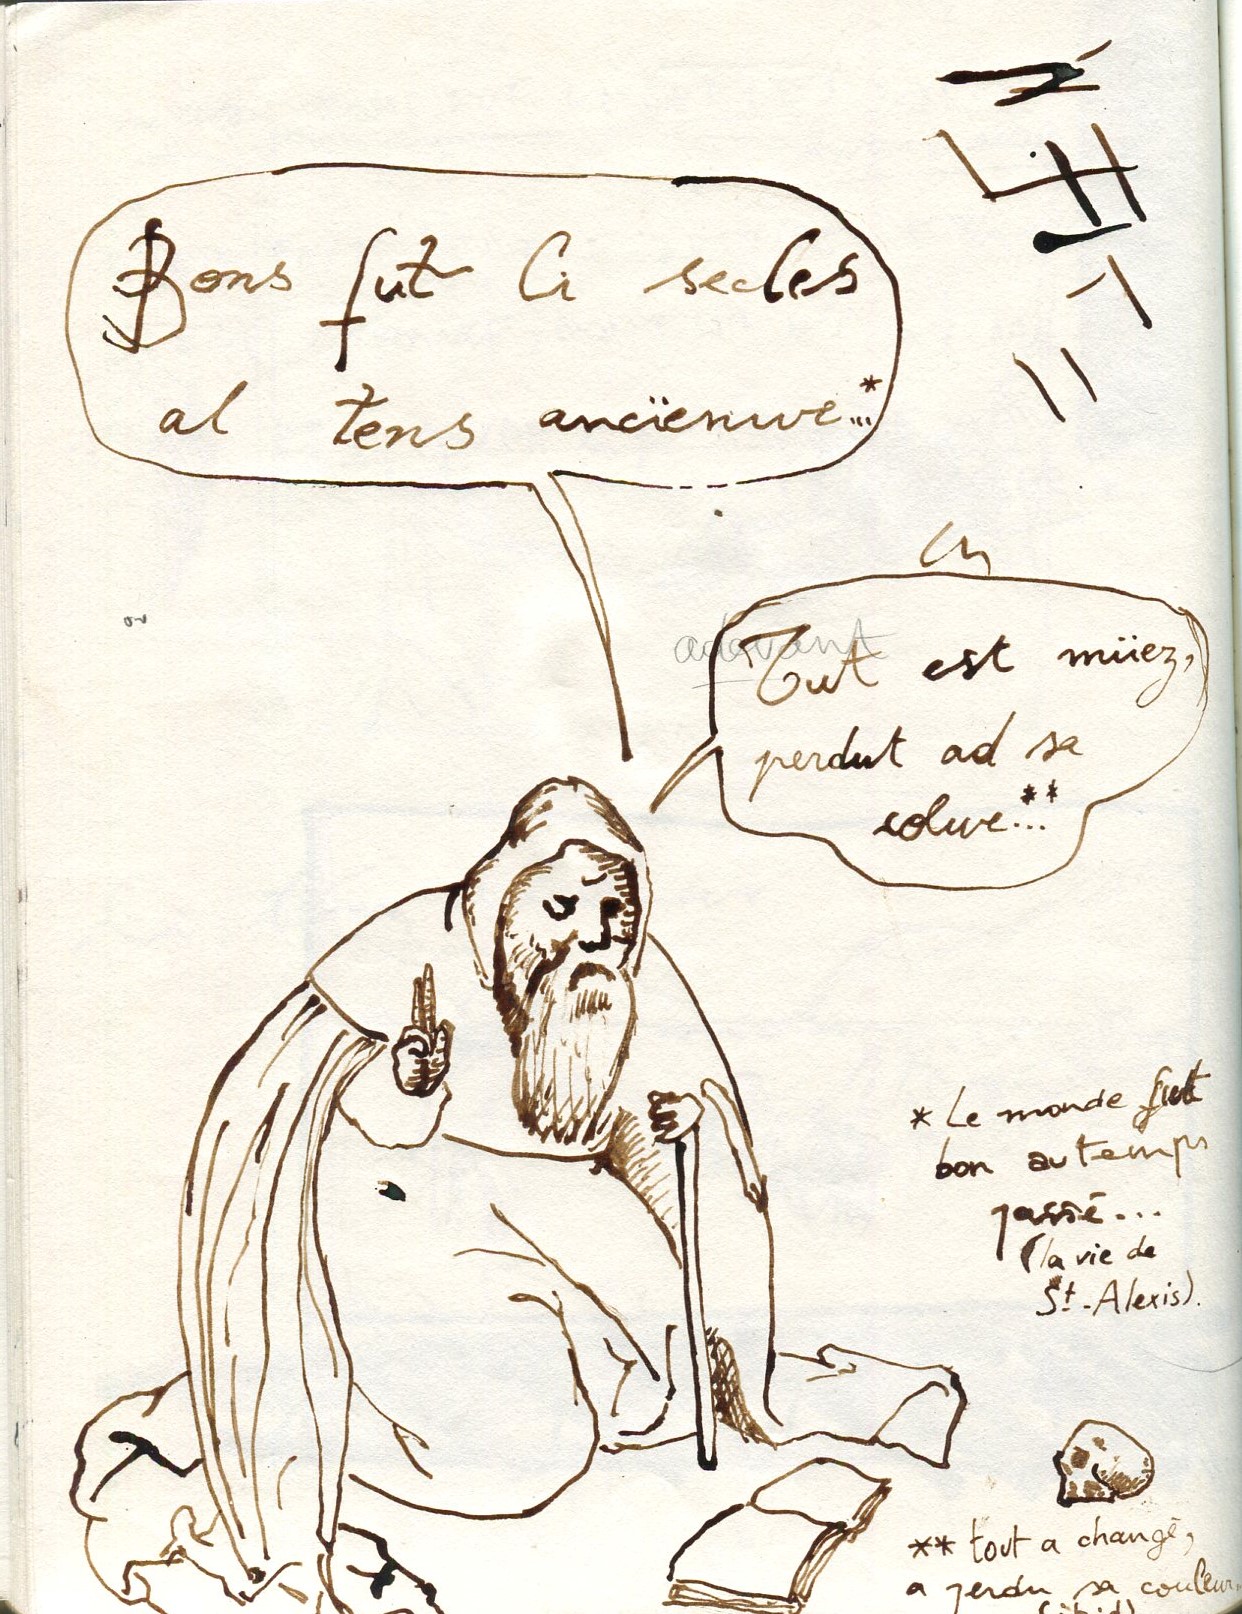 Bons fut li secles
al tens ancïenur...*
adevant
Tut est müez,
perdut ad sa
colur...**
* Le monde fut
bon au temps
passé...
(la vie de
St-Alexis).
** tout a changé,
a perdu sa couleur...
(ibid)